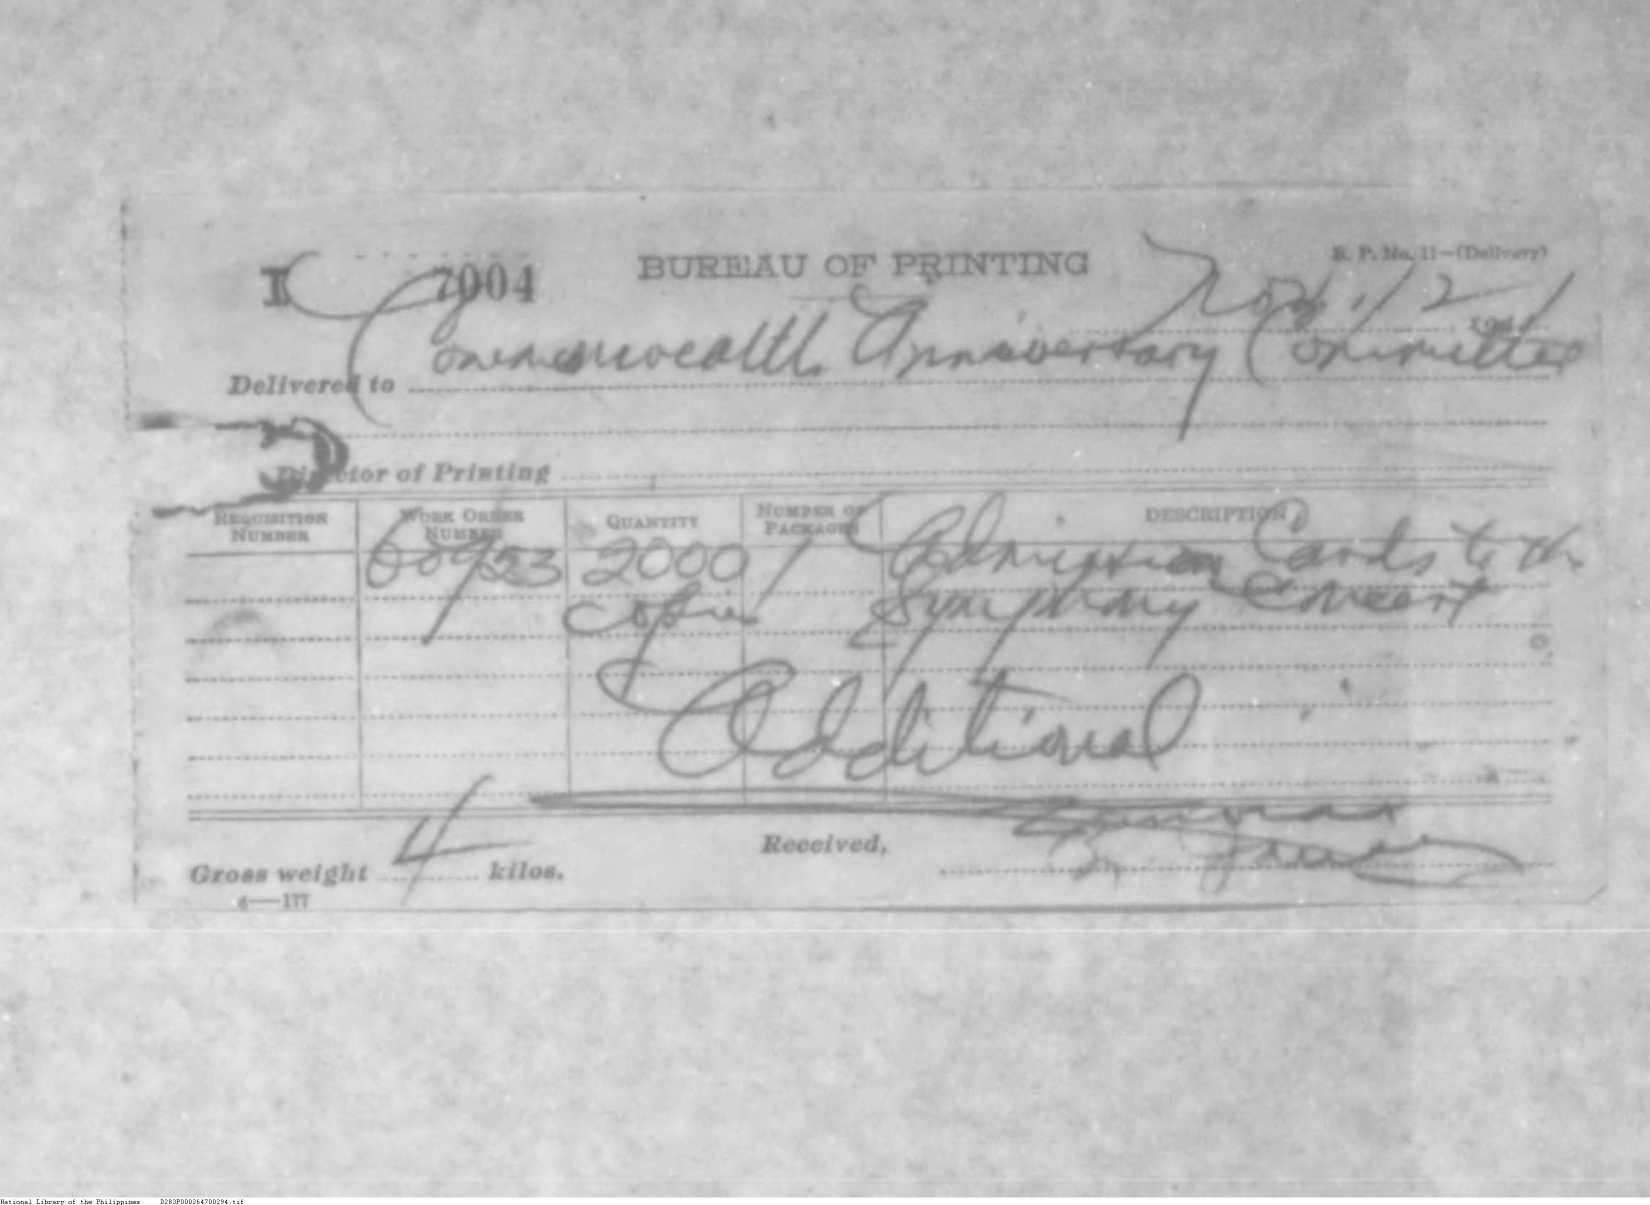 B. P. No. 11—(Delivery)
I 7004 BUREAU OF PRINTING
Nov. 12 1941
Delivered to Commonwealth Anniversary Committee
Director of Printing
REQUISITION NUMBER WORK ORDER NUMBER QUANTITY NUMBER OF PACKAGES DESCRIPTION
2000 1 Admission Cards to the
copies Symphony Concert
Additional
Received,
Gross weight 4 kilos.
6—177
National Library of the Philippines D283P000264700294.tif